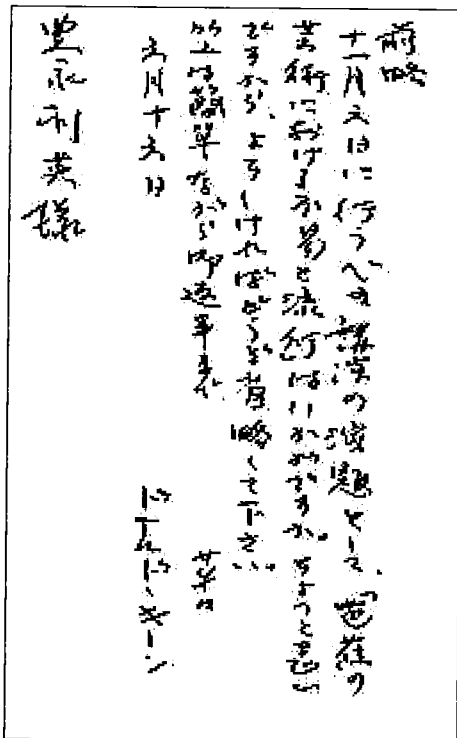 前略
十一月六日に行うべき講演の演題として、「芭蕉の
芸術における不易と流行」はいかがですか。ちょっと長い
ですから、よろしければどうぞ省略して下さい。
以上は簡単ながら御返事まで 草々
六月十六日 ドナルド・キーン
豊永利英様